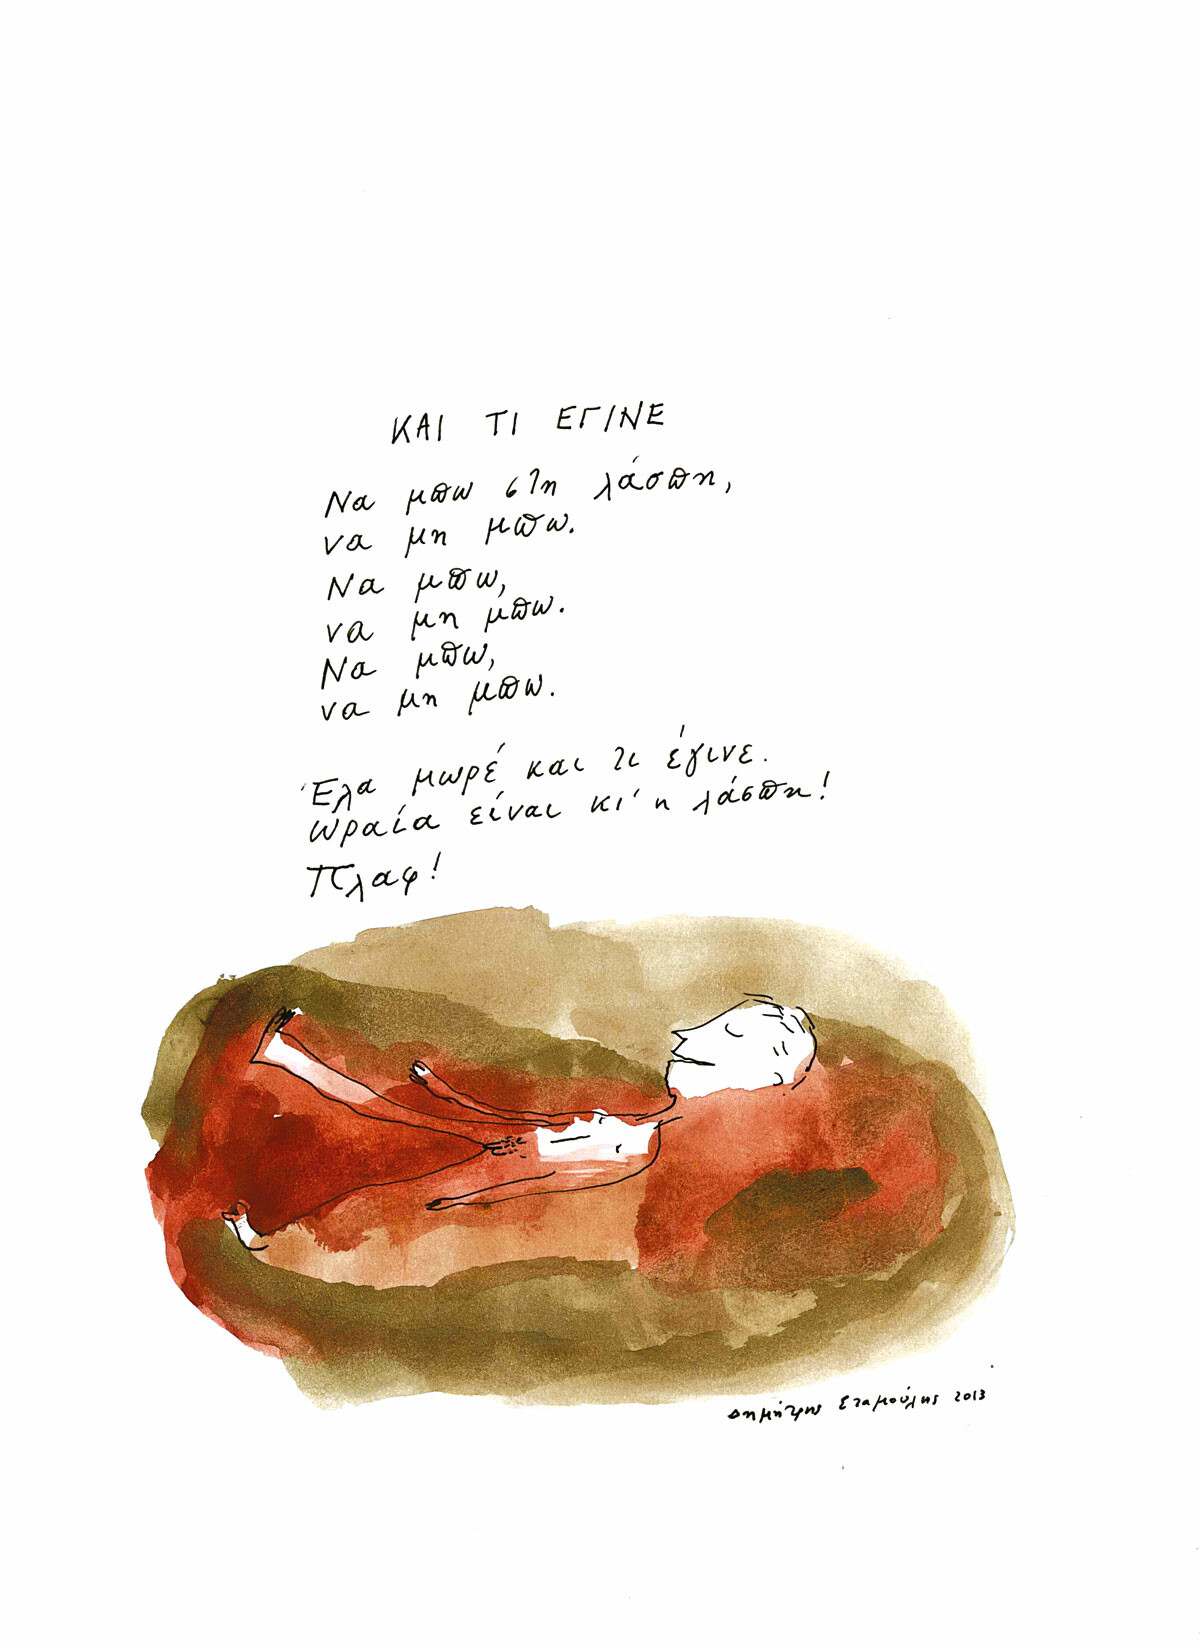 ΚΑΙ ΤΙ ΕΓΙΝΕ
Να μπω στη λάσπη,
να μη μπω.
Να μπω,
να μη μπω.
Να μπω,
να μη μπω.
Έλα μωρέ και τι έγινε.
Ωραία είναι κι' η λάσπη!
Πλαφ!
Δημήτρης Σταμούλης 2013